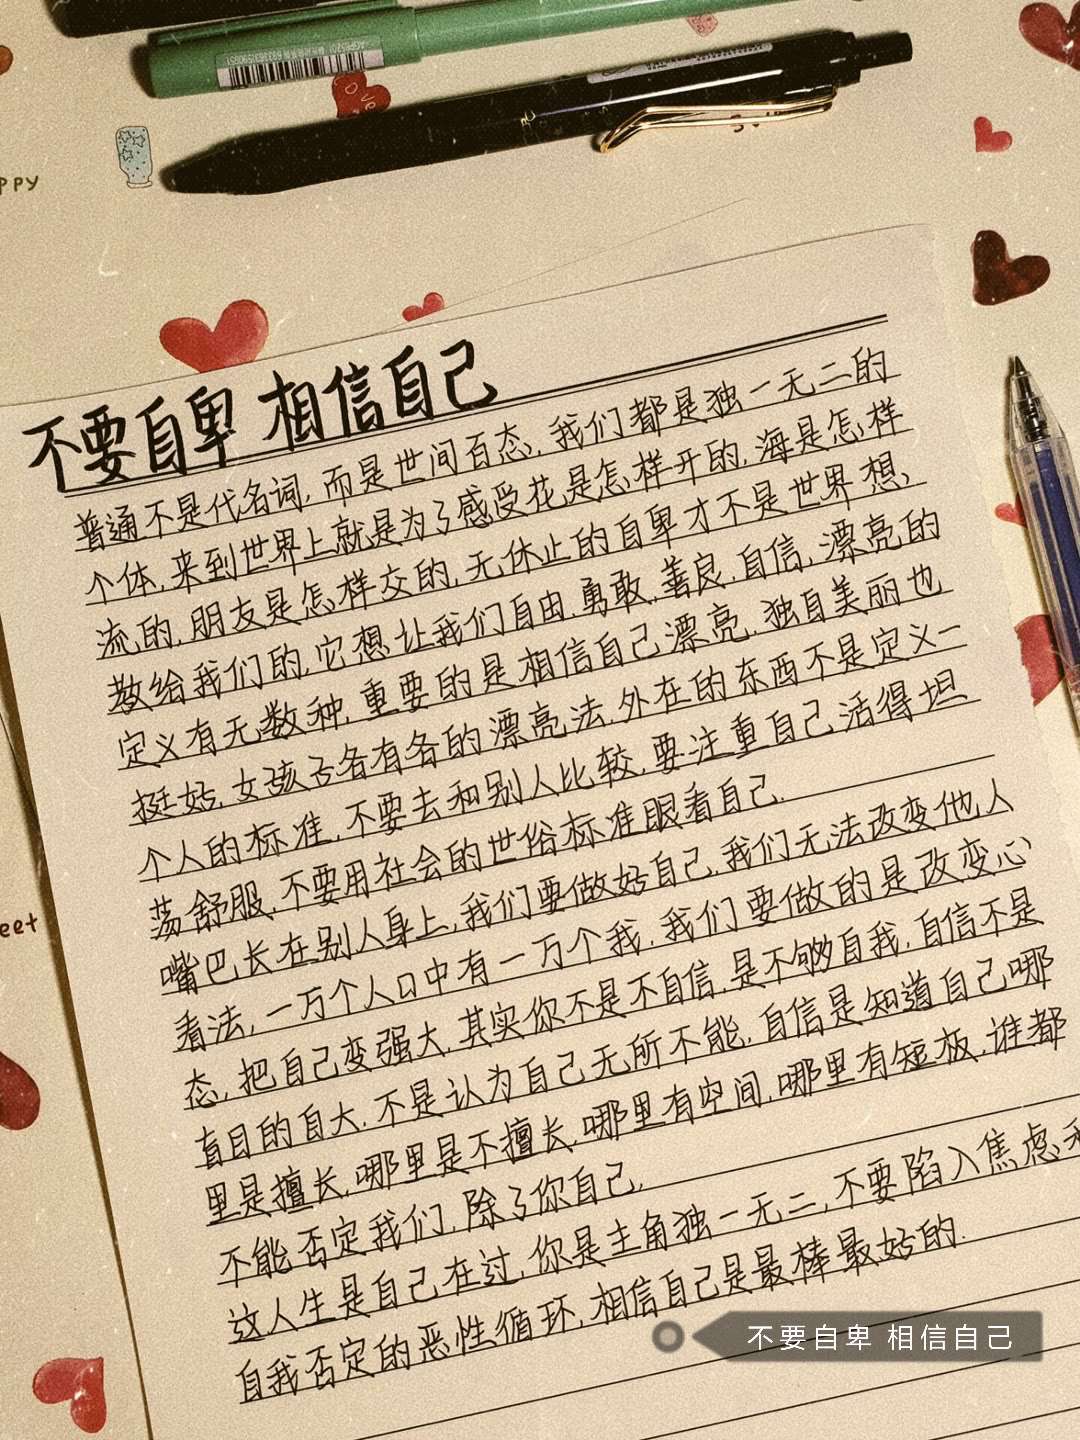 PPY
eet
不要自卑 相信自己
普通不是代名词,而是世间百态,我们都是独一无二的
个体,来到世界上就是为了感受花是怎样开的,海是怎样
流的,朋友是怎样交的,无休止的自卑才不是世界想、
教给我们的,它想让我们自由,勇敢,善良,自信,漂亮的
定义有无数种,重要的是相信自己漂亮,独自美丽也
挺好,女孩子各有各的漂亮法,外在的东西不是定义一
个人的标准,不要去和别人比较,要注重自己活得坦
荡舒服,不要用社会的世俗标准眼看自己.
嘴巴长在别人身上,我们要做好自己,我们无法改变他人
看法,一万个人口中有一万个我,我们要做的是改变心
态,把自己变强大,其实你不是不自信,是不够自我,自信不是
盲目的自大,不是认为自己无所不能,自信是知道自己哪
里是擅长,哪里是不擅长,哪里有空间,哪里有短板,谁都
不能否定我们,除了你自己,
这人生是自己在过,你是主角独一无二,不要陷入焦虑
自我否定的恶性循环,相信自己是最棒最好的.
不要自卑 相信自己